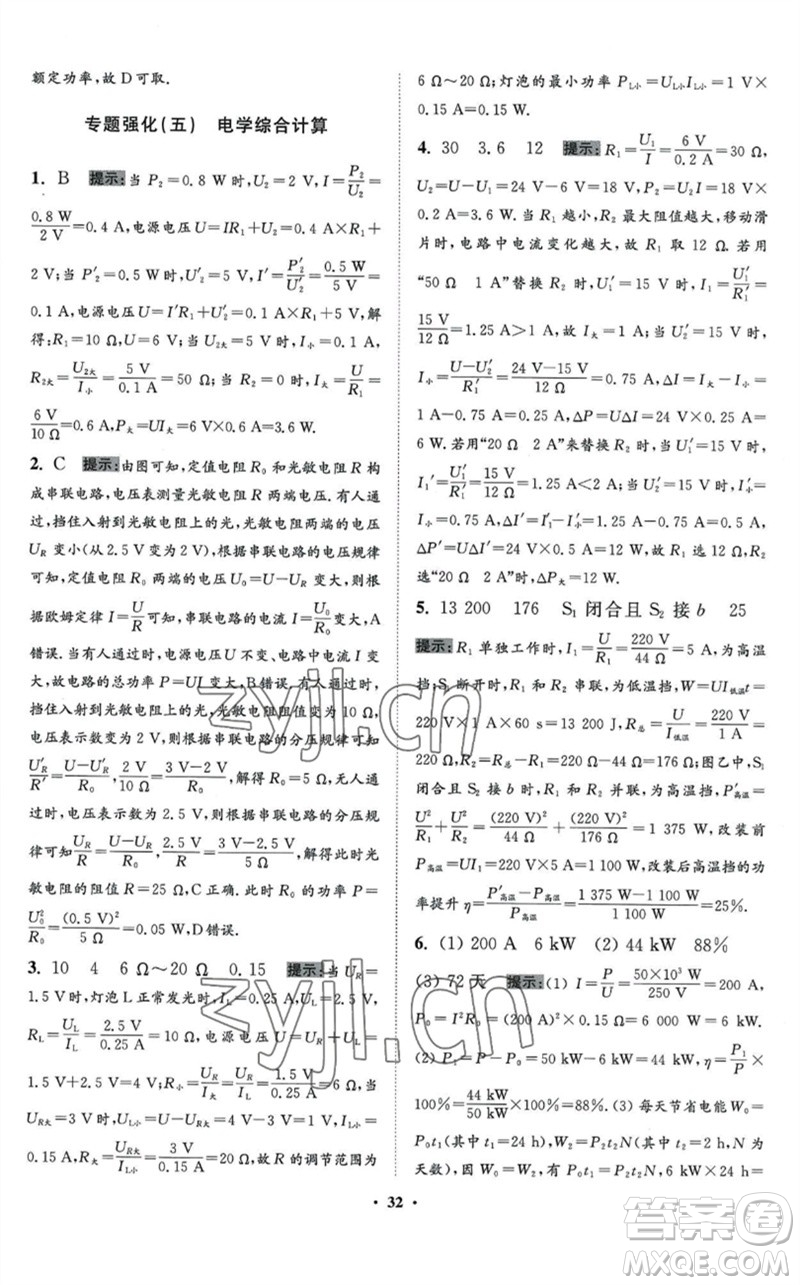 额定功率,故 D 可取.
专题强化(五) 电学综合计算
1. B 提示:当 P₂=0.8 W 时,U₂=2 V,I=P₂/U₂=
0.8 W/2 V=0.4 A,电源电压 U=IR₁+U₂=0.4 A×R₁+
2 V;当 P′₂=0.5 W 时,U′₂=5 V,I′=P′₂/U′₂=0.5 W/5 V=
0.1 A,电源电压 U=I′R₁+U′₂=0.1 A×R₁+5 V,解
得:R₁=10 Ω,U=6 V;当 U₂大=5 V 时,I小=0.1 A,
R₂大=U₂大/I小=5 V/0.1 A=50 Ω;当 R₂=0 时,I大=U/R₁=
6 V/10 Ω=0.6 A,P大=UI大=6 V×0.6 A=3.6 W.
2. C 提示:由图可知,定值电阻 R₀和光敏电阻 R 构
成串联电路,电压表测量光敏电阻 R 两端电压.有人通
过时,挡住入射到光敏电阻上的光,光敏电阻两端的电压
U_R 变小(从 2.5 V 变为 2 V),根据串联电路的电压规律
可知定值电阻 R₀ 两端的电压 U₀=U−U_R 变大,则根
据欧姆定律 I=U/R可知,串联电路的电流 I 变大,A
错误.有人通过时,电路电压 U 不变、电路电流 I 变
大,故电路的总功率 P=UI 变大,B错误.有人通过时,
挡住入射到光敏电阻的光,光敏电阻阻值变为 10 Ω,
电压表示数变为 2 V,根据串联电路的分压规律可知
U′_R/R′=U−U′_R/R₀,2 V/10 Ω=3 V−2 V/R₀,解得 R₀=5 Ω.无人通
过时,电压表示数为 2.5 V,根据串联电路的分压规
律可知U_R/R=U−U_R/R₀,2.5 V/R=3 V−2.5 V/5 Ω,解得此时光
敏电阻的阻值 R=25 Ω,C 正确.此时 R₀ 的功率 P=
U₀²/R₀=(0.5 V)²/5 Ω=0.05 W,D错误.
3. 10 4 6 Ω~20 Ω 0.15 提示:当 U_R=
1.5 V时,灯泡 L 正常发光时,I大=0.25 A,U_L=2.5 V,
R_L=U_L/I大=2.5 V/0.25 A=10 Ω,电源电压 U=U_R+U_L=
1.5 V+2.5 V=4 V;R小=U_R/I大=1.5 V/0.25 A=6 Ω;当
U_R大=3 V时,U_L小=U−U_R大=4 V−3 V=1 V,I_L小=
0.15 A,R大=U_R大/I_L小=3 V/0.15 A=20 Ω,故 R 的调节范围为
6 Ω~20 Ω;灯泡的最小功率 P_L小=U_L小I_L小=1 V×
0.15 A=0.15 W.
4. 30 3.6 12 提示:R₁=U₁/I=6 V/0.2 A=30 Ω,
U₂=U−U₁=24 V−6 V=18 V,P₂=U₂I=18 V×
0.2 A=3.6 W.当 R₁ 越小,R₂ 最大阻值越大,移动滑
片时,电路中电流变化越大,故 R₁ 取 12 Ω.若用
“50 Ω 1 A”替换 R₂,当 U′₁=15 V 时,I₁=U′₁/R′₁=
15 V/12 Ω=1.25 A>1 A,故 I大=1 A;当 U′₂=15 V 时,
I小=U−U′₂/R′₁=24 V−15 V/12 Ω=0.75 A,ΔI=I大−I小=
1 A−0.75 A=0.25 A,ΔP=UΔI=24 V×0.25 A=
6 W.若用“20 Ω 2 A”来替换 R₂,当 U′₁=15 V 时,
I₁′=U′₁/R′₁=1.25 A<2 A;当 U′₂=15 V 时,I小=
I小=0.75 A,ΔI′=I′₁−I′小=1.25 A−0.75 A=0.5 A,
ΔP′=UΔI′=24 V×0.5 A=12 W,ΔP′>ΔP,故 R₂
选“20 Ω 2 A”.
5. 13 200 176 S₁ 闭合且 S₂ 接 b 25
提示:R₁ 单独工作时,I=U/R₁=220 V/44 Ω=5 A,为高温
挡;S₁ 断开时,R₁ 和 R₂ 串联,为低温挡,W=UI低温t=
220 V×1 A×60 s=13 200 J,R总=U/I低温=220 V/1 A=
220 Ω,R₂=R总−R₁=220 Ω−44 Ω=176 Ω;图乙中,S₁
闭合且 S₂ 接 b 时,R₁ 和 R₂ 并联,为高温挡,P′高温=
U²/R₁+U²/R₂=(220 V)²/44 Ω+(220 V)²/176 Ω=1 375 W,改装前
P高温=UI₁=220 V×5 A=1 100 W,改装后高温挡的功
率提升 η=P′高温−P高温/P高温=1 375 W−1 100 W/1 100 W=25%.
6. (1) 200 A 6 kW (2) 44 kW 88%
(3) 72 天 提示:(1) I=P/U=50×10³ W/250 V=200 A,
P₀=I²R₀=(200 A)²×0.15 Ω=6 000 W=6 kW.
(2) P₁=P−P₀=50 kW−6 kW=44 kW,η=P₁/P×
100%=44 kW/50 kW×100%=88%.(3) 每天节省电能 W₀=
P₀t₁(其中 t₁=24 h),W₂=P₂t₁n(其中 t₁=24 h,n 为
天数),因 W₀=W₂,有 P₀t₁=P₂t₁n,6 kW×24 h=
· 32 ·
zyjl.cn
zyjl.cn
答案圈
MXQE.COM